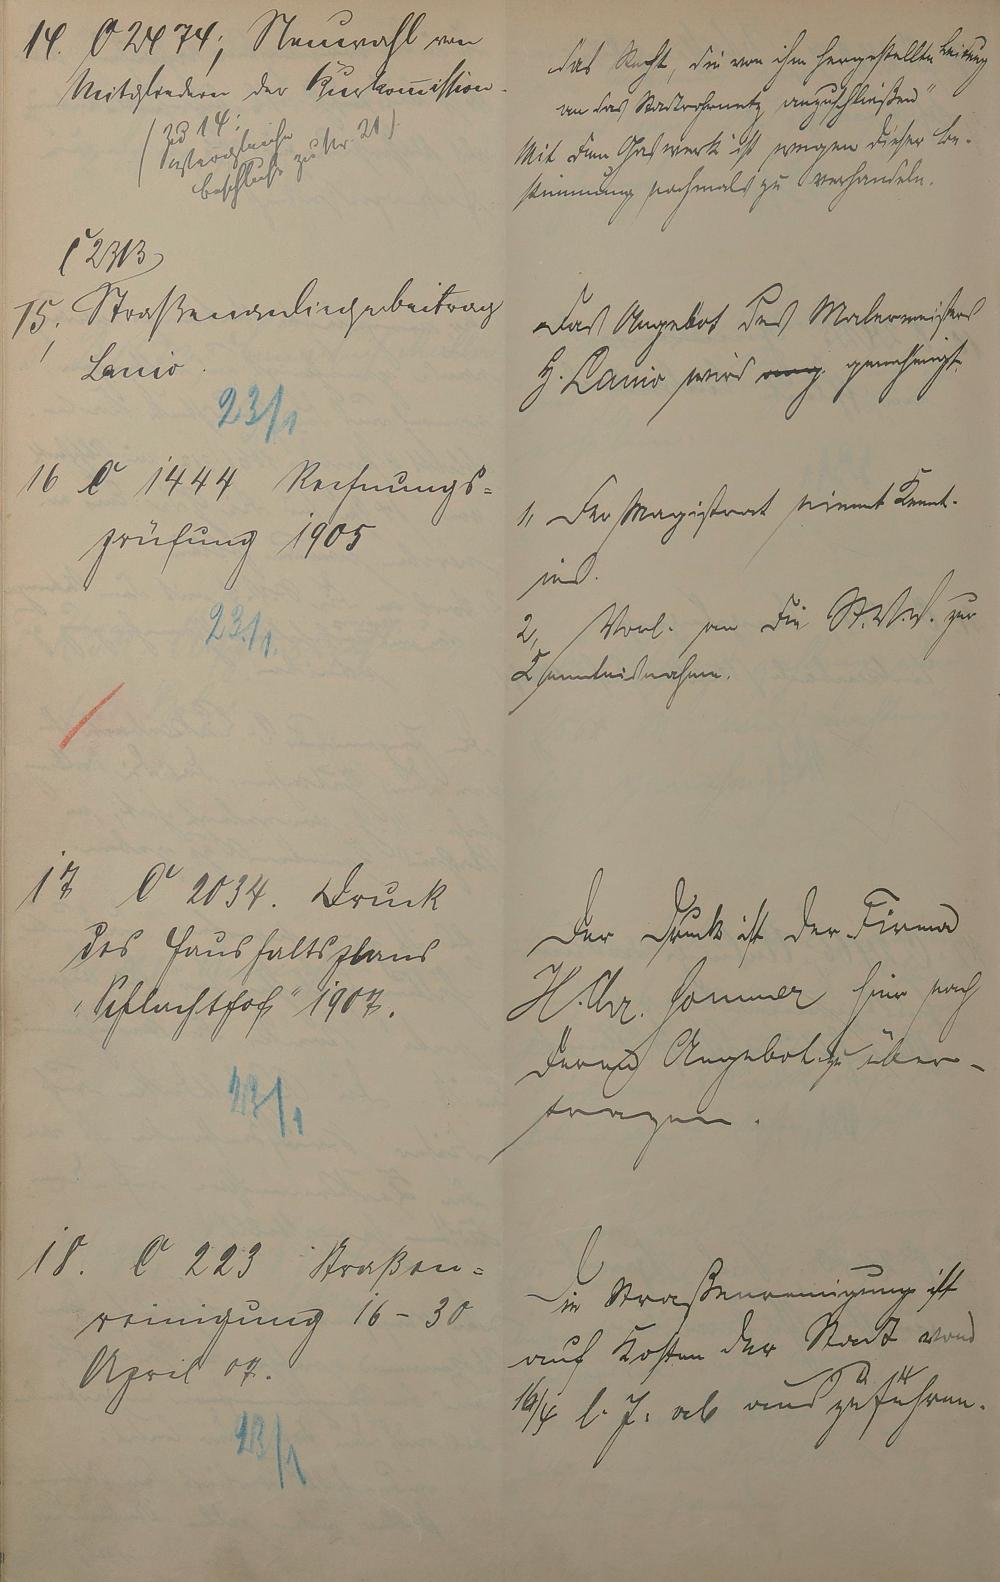 14. C 2474; Neuwahl von
Mitgliedern der Kurkommission.
(zu 14:
vergleiche
beschluß zu Nr. 21)
das Recht, die von ihm hergestellte Leitung
an das Stadtrohrnetz anzuschließen"
Mit dem Gaswerk ist wegen dieser Be-
stimmung nochmals zu verhandeln.
C 2313
15. Straßenanliegerbeitrag
Lanio.
23/1
Das Angebot des Malermeisters
H. Lanio wird genehmigt.
16 C 1444 Rechnungs-
prüfung 1905
23/1.
1, Der Magistrat nimmt Kennt-
nis.
2, Vorl. an die St.V.V. zur
Kenntnisnahme.
17 C 2034. Druck
des Haushaltsplans
"Schlachthof" 1907.
23/1
Der Druck ist der Firma
H. Chr. Sommer hier nach
deren Angebot zu über-
tragen.
18. C 223 Straßen-
reinigung 16-30
April 07.
23/1
Die Straßenreinigung ist
auf Kosten der Stadt vom
16/4 l. J. ab auszuführen.